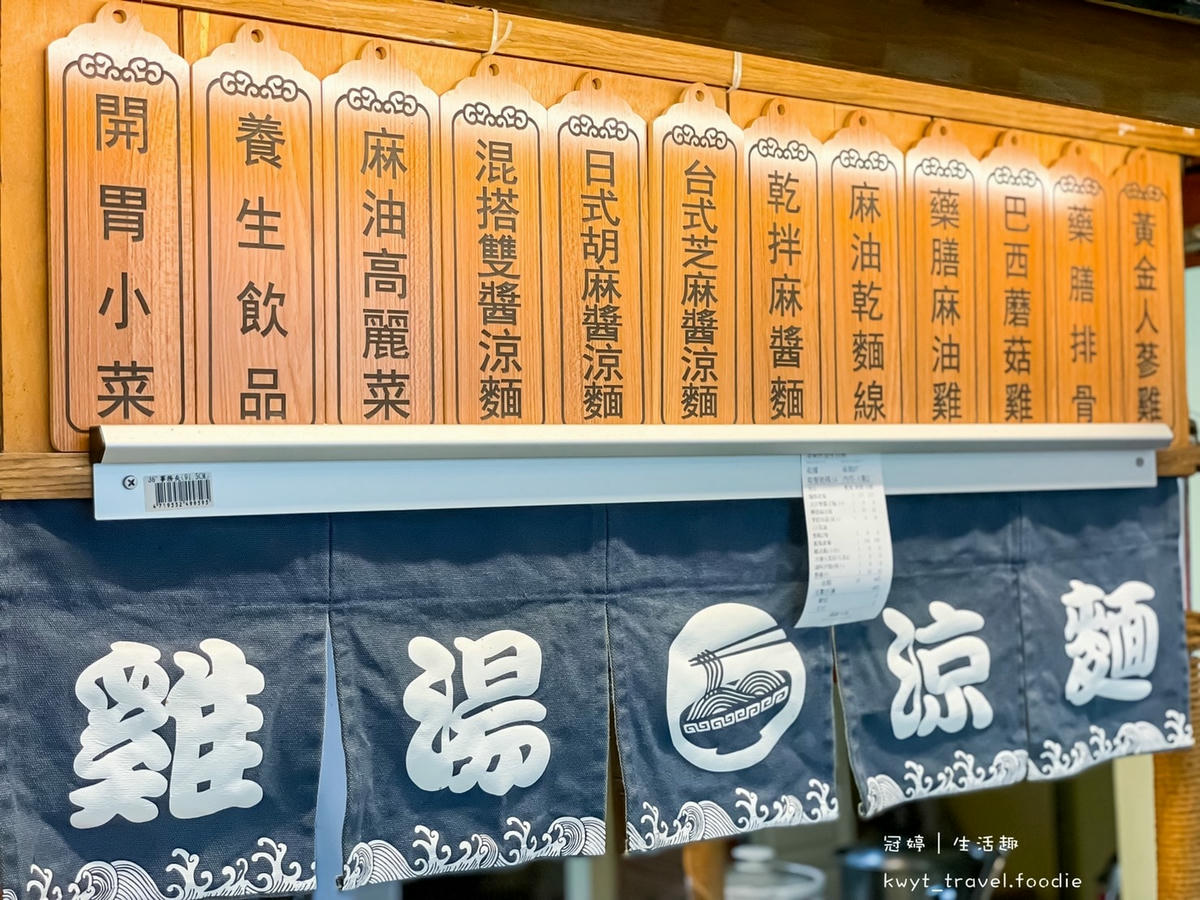 開胃小菜
養生飲品
麻油高麗菜
混搭雙醬涼麵
日式胡麻醬涼麵
台式芝麻醬涼麵
乾拌麻醬麵
麻油乾麵線
藥膳麻油雞
巴西蘑菇雞
藥膳排骨
黃金人蔘雞
雞湯涼麵
冠婷｜生活趣
kwyt_travel.foodie